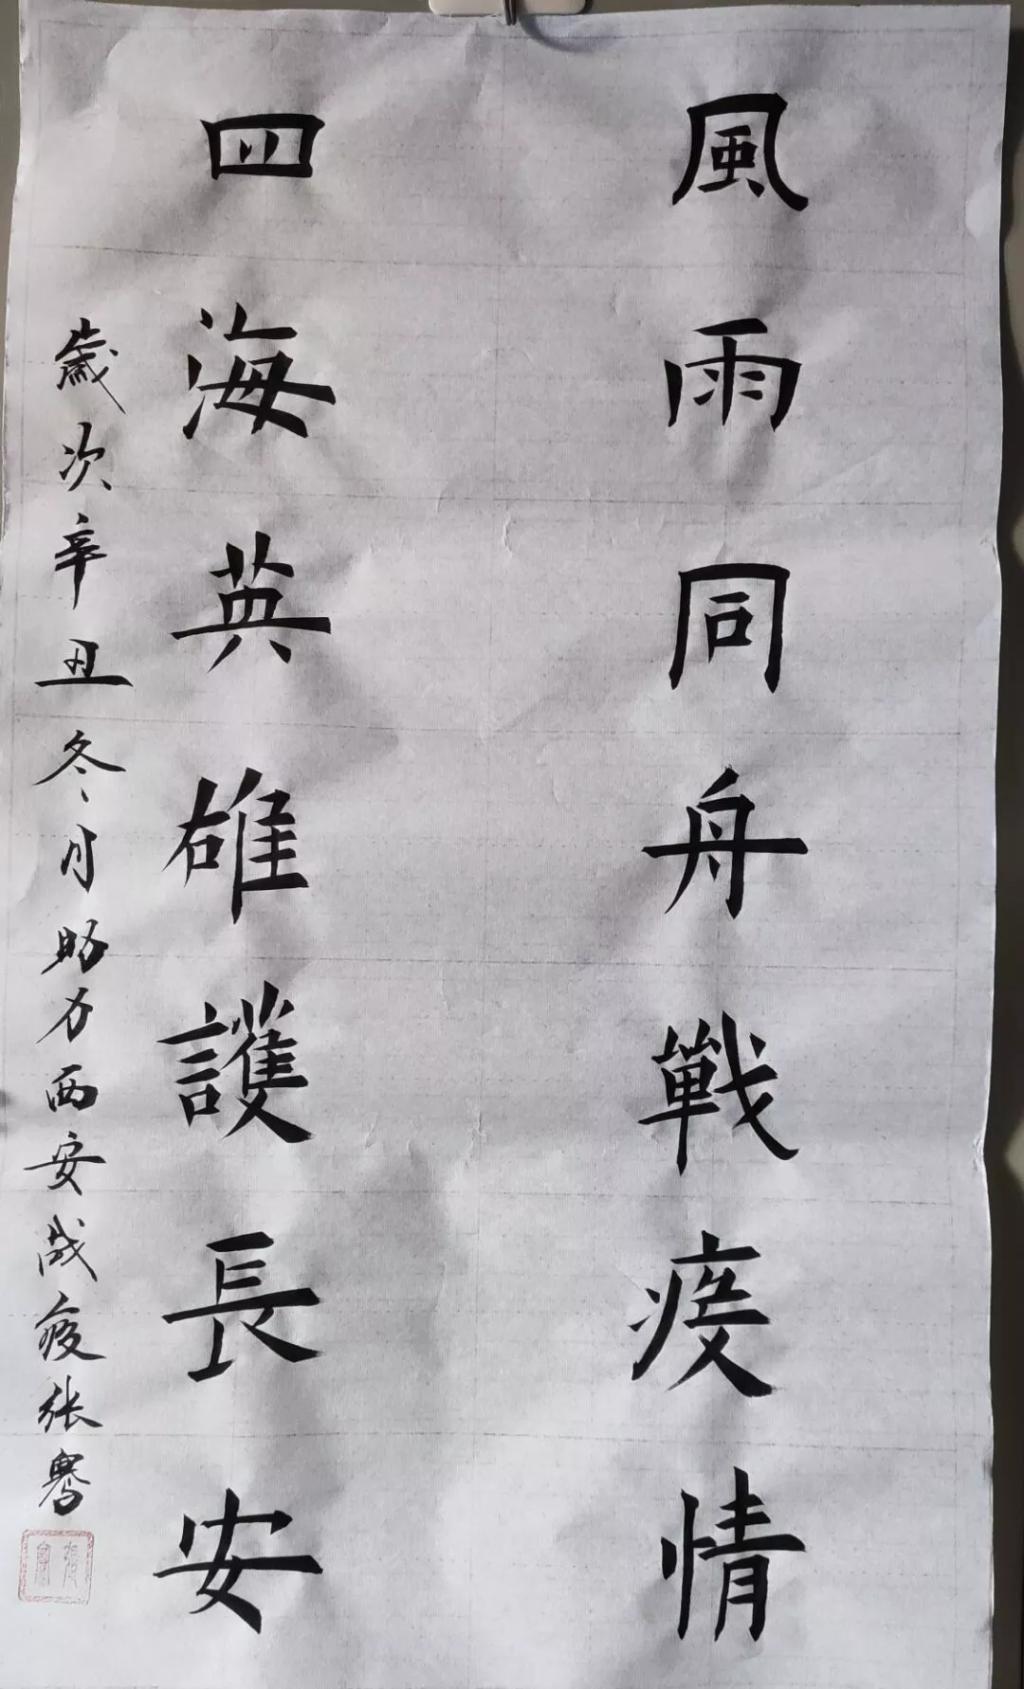 風雨同舟戰疫情
四海英雄護長安
歲次辛丑冬月助力西安战疫张粤